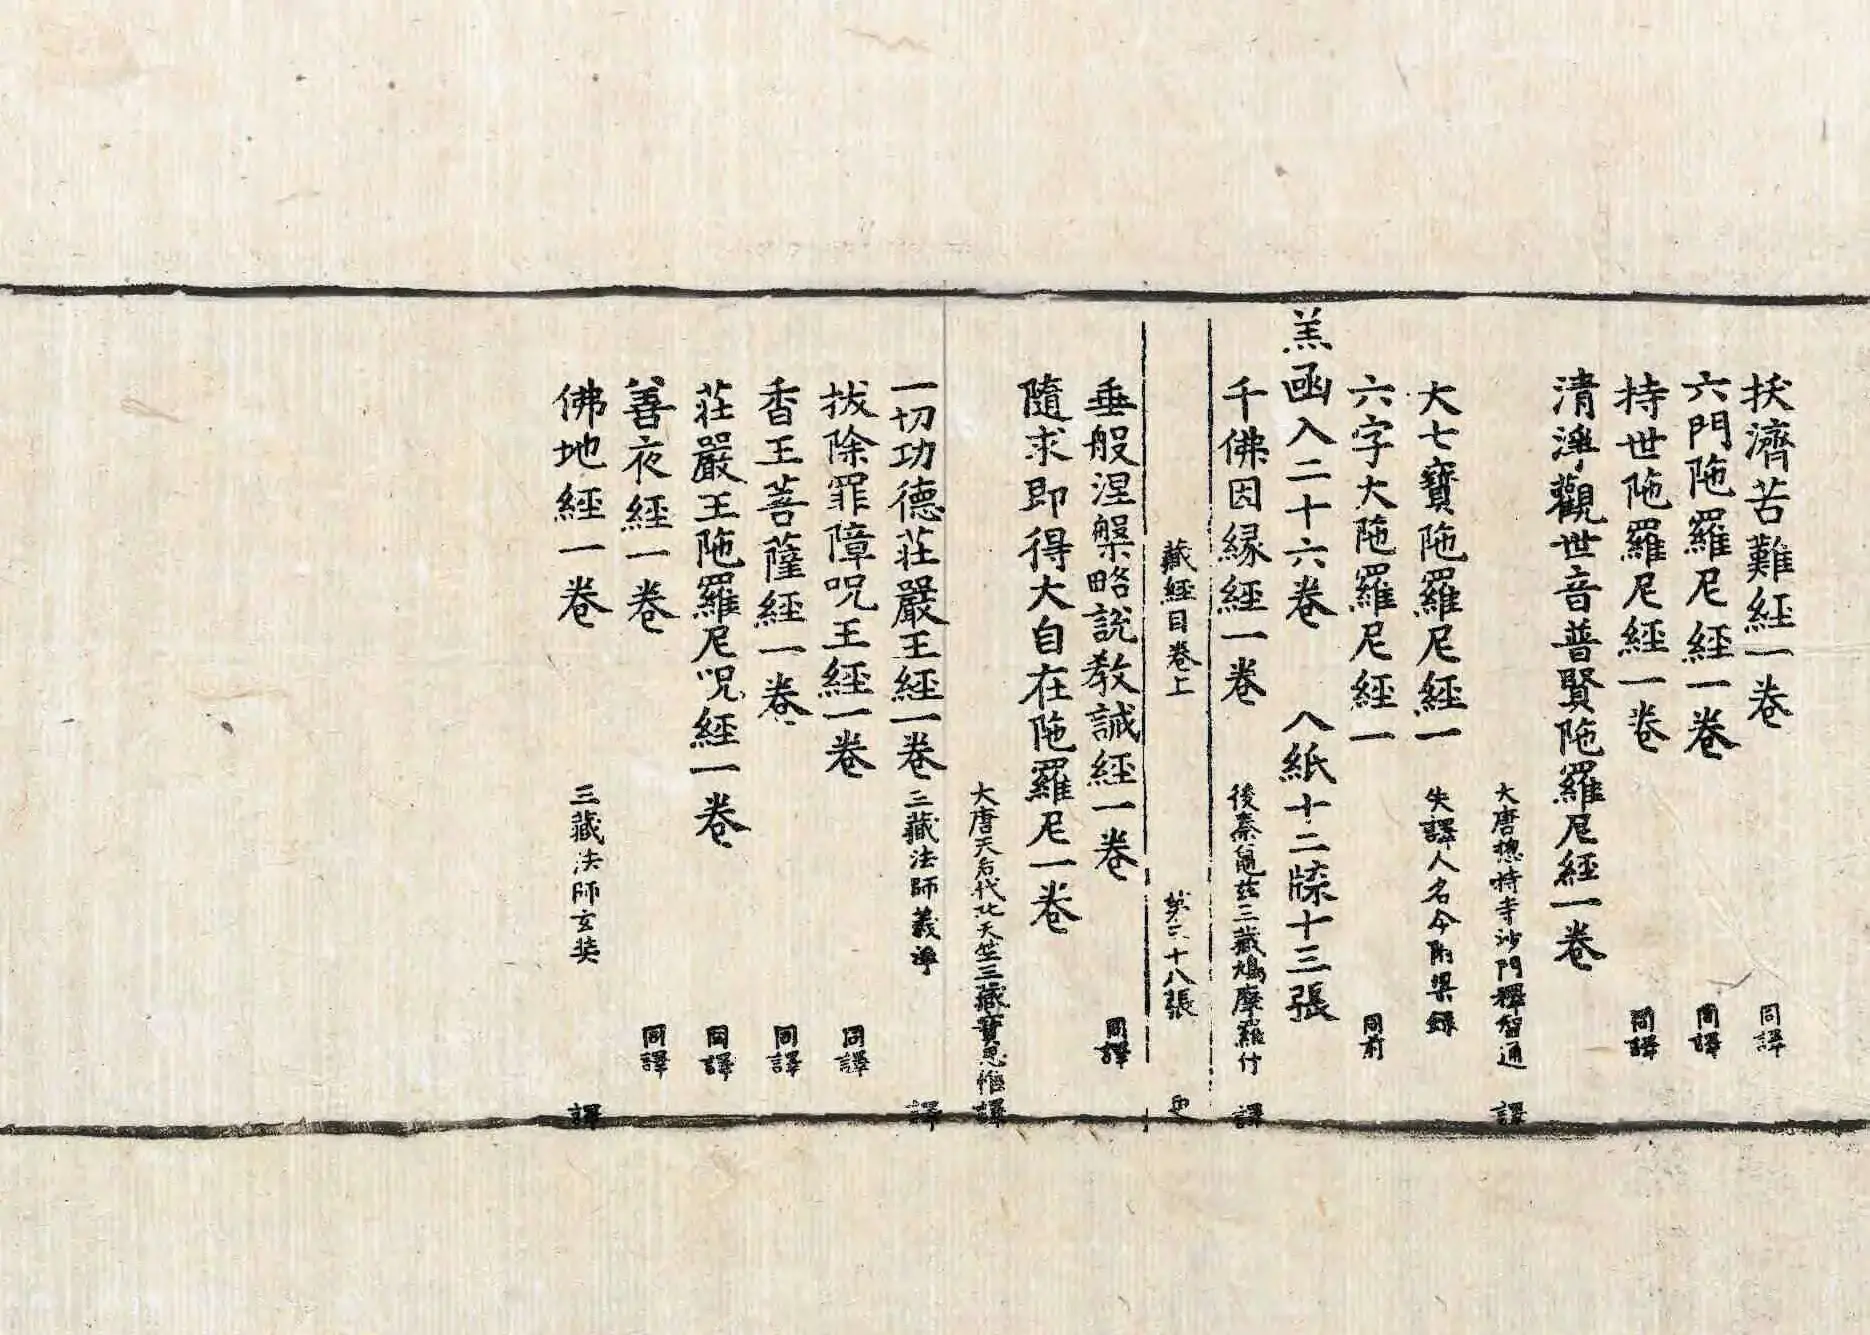 扶濟苦難經一卷 同譯
六門陁羅尼經一卷 同譯
持世陁羅尼經一卷 同譯
清淨觀世音普賢陁羅尼經一卷
大唐揔持寺沙門釋智通 譯
大七寶陁羅尼經一 失譯人名今附梁錄
六字大陁羅尼經一 同前
羔函入二十六卷 八紙十二牒十三張
千佛因緣經一卷 後秦龜茲三藏鳩摩羅什 譯
藏經目卷上 第三十八張
垂般涅槃略說教誡經一卷 同譯
隨求即得大自在陁羅尼一卷
大唐天后代北天竺三藏寶思惟譯
一切功德莊嚴王經一卷 三藏法師義淨 譯
拔除罪障呪王經一卷 同譯
香王菩薩經一卷 同譯
莊嚴王陁羅尼呪經一卷 同譯
善夜經一卷 同譯
佛地經一卷 三藏法師玄奘 譯